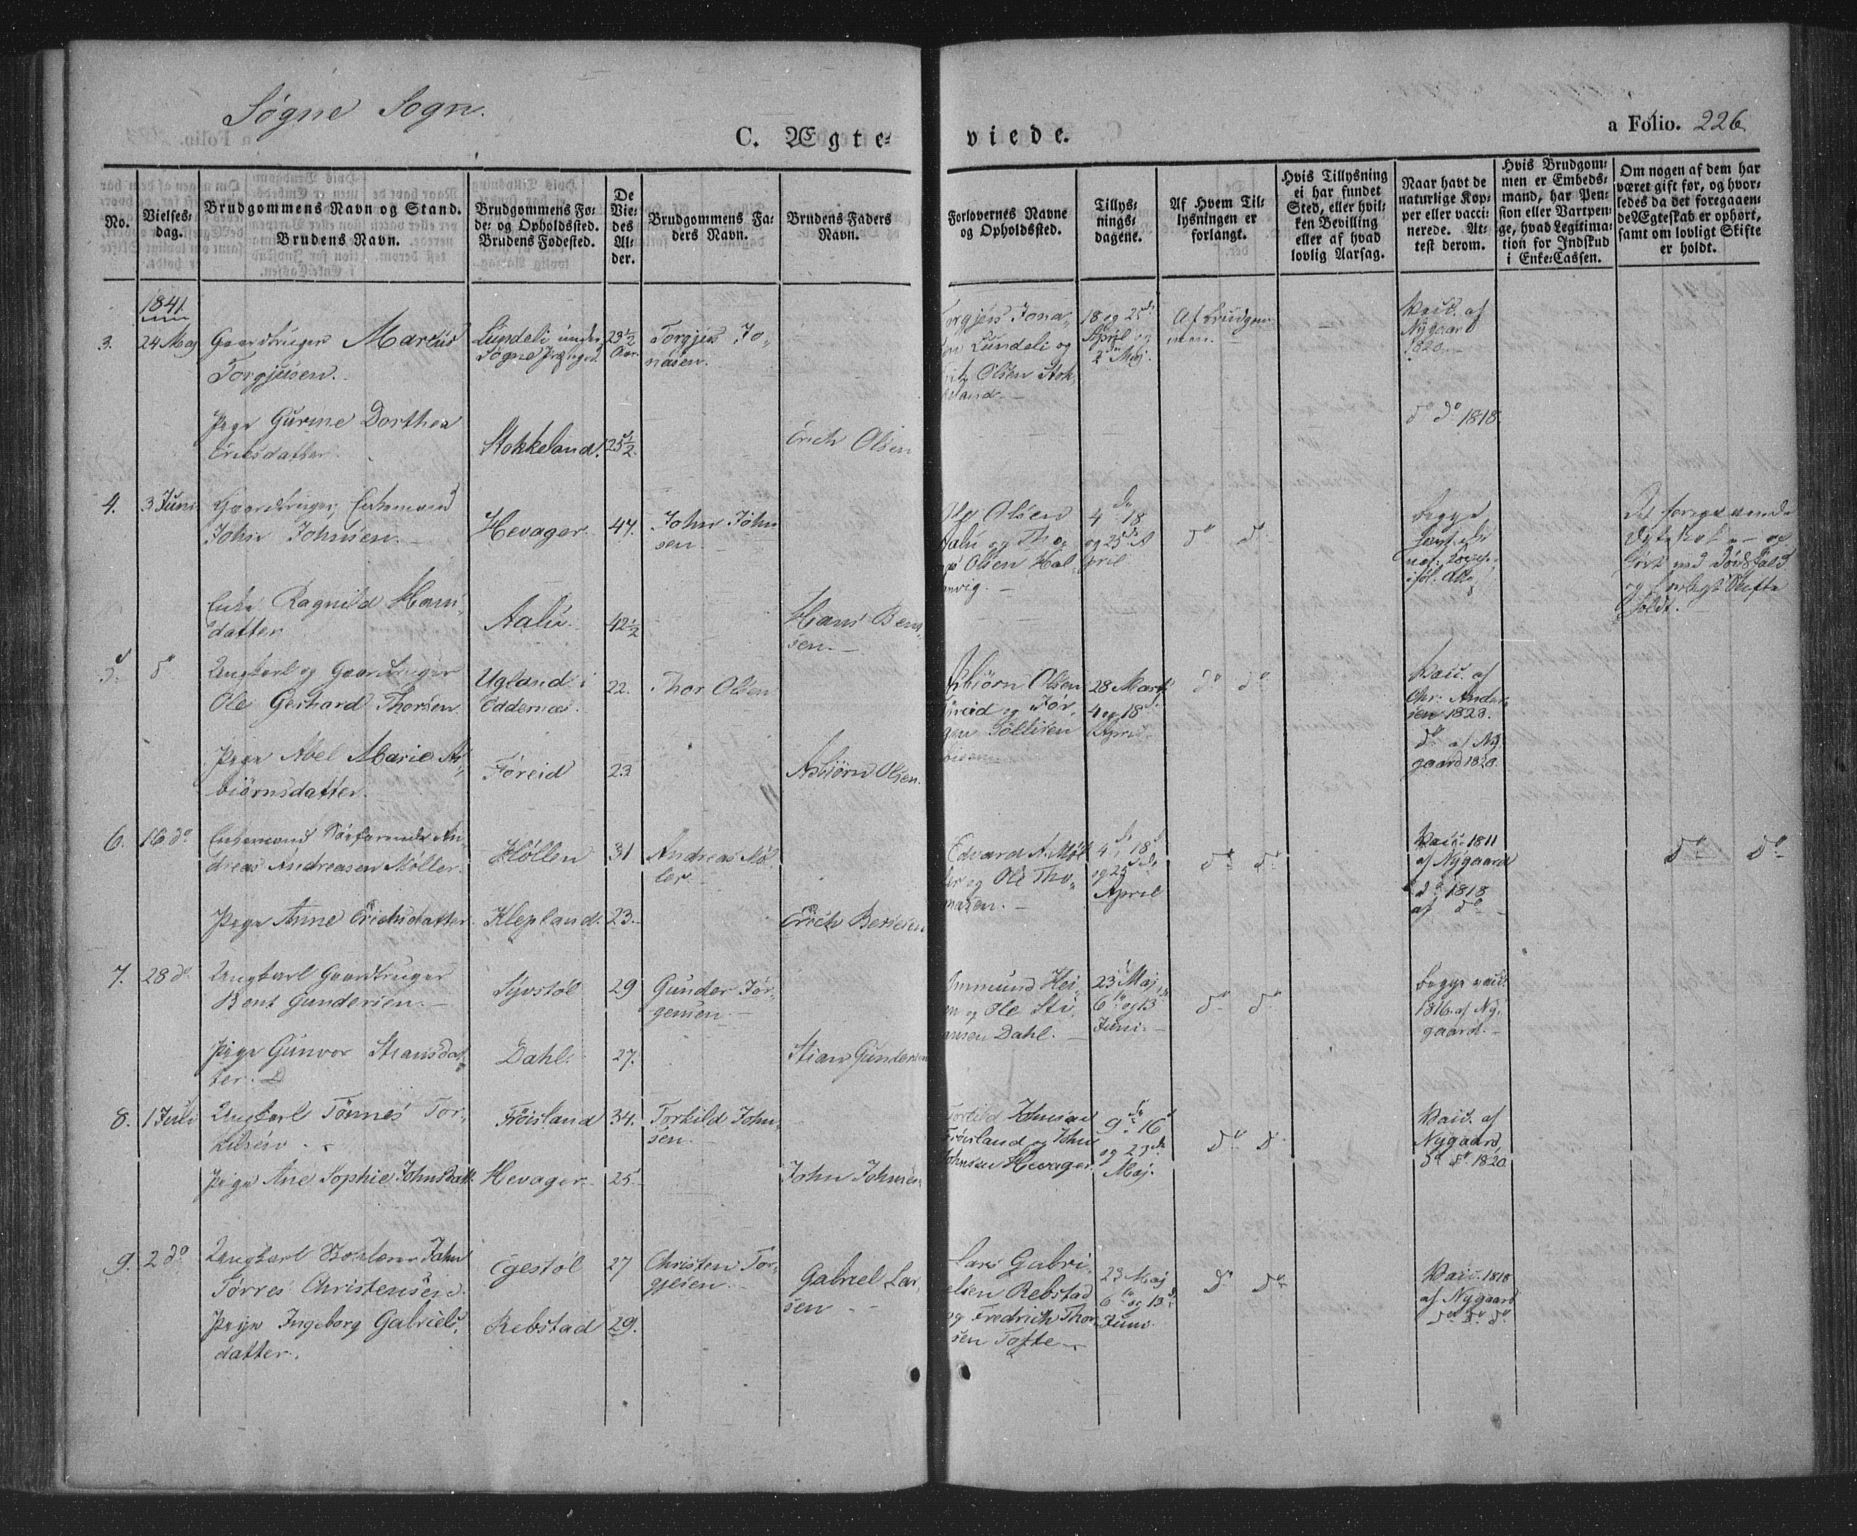 Søgne Sogn.
C. Ægte-
viede.
a Folio. 226
No.
Vielses-
dag.
Brudgommens Navn og Stand.
Brudens Navn.
Brudgommens Fø-
de- og Opholdssted.
Brudens Fødested.
De
Vie-
des
Al-
der.
Brudgommens Fa-
ders Navn.
Brudens Faders
Navn.
Forlovernes Navne
og Opholdssted.
Tillys-
nings-
dagene.
Af Hvem Til-
lysningen er
forlangt.
Hvis Tillysning
ei har fundet
Sted, eller hvil-
ken Bevilling
eller af hvad
lovlig Aarsag.
Naar havt de
naturlige Kop-
per eller vacci-
nerede. At-
test derom.
Hvis Brudgom-
men er Embeds-
mand, har Pen-
sion eller Vartpen-
ge, hvad Legitima-
tion for Indskud
i Enke-Cassen.
Om nogen af dem har
været gift før, og hvor-
ledes da det foregaaen-
de Ægteskab er ophørt,
samt om lovligt Skifte
er holdt.
1841
3. 24 Maj
Gaardbruger Marius
Torgjusen.
Lundeli under
Søgne
23½
Aar
Torgjus Jo-
nasen.
Torgjus Jona-
sen Lundeli og
Olsen Stok-
keland.
18 og 25de
April og
2den Maj.
Af Brudgom-
men.
Vacc. af
Nygaard
1820.
Pige Gurine Dorthea
Erichsdatter
Stokkeland.
25½
Erich Olsen
do do 1818.
4. 3 Juni
Gaardbruger, Enkemand
John Johnsen.
Hevager
47.
John John-
sen.
Olsen
Aalo og
Olsen Hal-
4de 18
og 25de A-
pril
do do
Begge
Det foregaaende
Ægteskab er op-
hørt ved Dødsfald
og lovligt Skifte
holdt.
Enke Ragnild Hans-
datter
Aalo.
42½
Hans Bent-
sen.
5. do
Ungkarl og Gaardbruger
Ole Gerhard Thorsen
Ugland i
Oddernes
22.
Thor Olsen
Asbiørn Olsen
Føreid og Jør-
gen
28 Marts
4 og 18
April
do do
Vacc. af
Chr. Ander-
sen 1823.
Pige Abel Marie As-
biørnsdatter.
Føreid
23
Asbiørn Olsen.
do af Ny-
gaard 1820.
6. 16 do
Enkemand Søefarende An-
dreas Andreasen Møller.
Høllen
31
Andreas Møl-
ler
Edvard A. Møl-
ler og Ole Tho-
masen.
4de 18de
og 25de
April
do do
Vacc. 1811
af Nygaard
do do
Pige Anne Erichsdatter
Klepland.
23.
Erich Bentsen
do 1818
af do
7. 28 do
Ungkarl Gaardbruger
Bent Gundersen.
Syvstøl
29
Gunder Jør-
gensen.
Ammund Hei-
en og Ole Sti-
ansen Dahl.
23 Maj
6te og 13
Juni.
do do
Begge vacc.
1816 af Ny-
gaard.
Pige Gunvor Stiansdat-
ter.
Dahl.
27.
Stian Gundersen
8. 1 Juli
Ungkarl Tønnes Tor-
kilsen
Frøisland
34.
Torkild John-
sen.
Torkild Johnsen
Frøisland og John
Johnsen Hevager
9de 16
og 23de
Maj.
do do
Vacc. af
Nygaard
do do 1820
Pige Ane Sophie Johnsdatt.
Hevager
25
John Johnsen
9. 2 do
Ungkarl John
Tørres Christensen.
Egestøl
27
Christen Tor-
gjesen
Lars Gabri-
elsen Rebstad
og Fredrich Thor-
sen Tofte
23 Maj
6te og 13de
Juni
do do
Vacc. 1818
af Nygaard
do do do
Pige Ingeborg Gabriels-
datter.
Rebstad
29.
Gabriel Lar-
sen